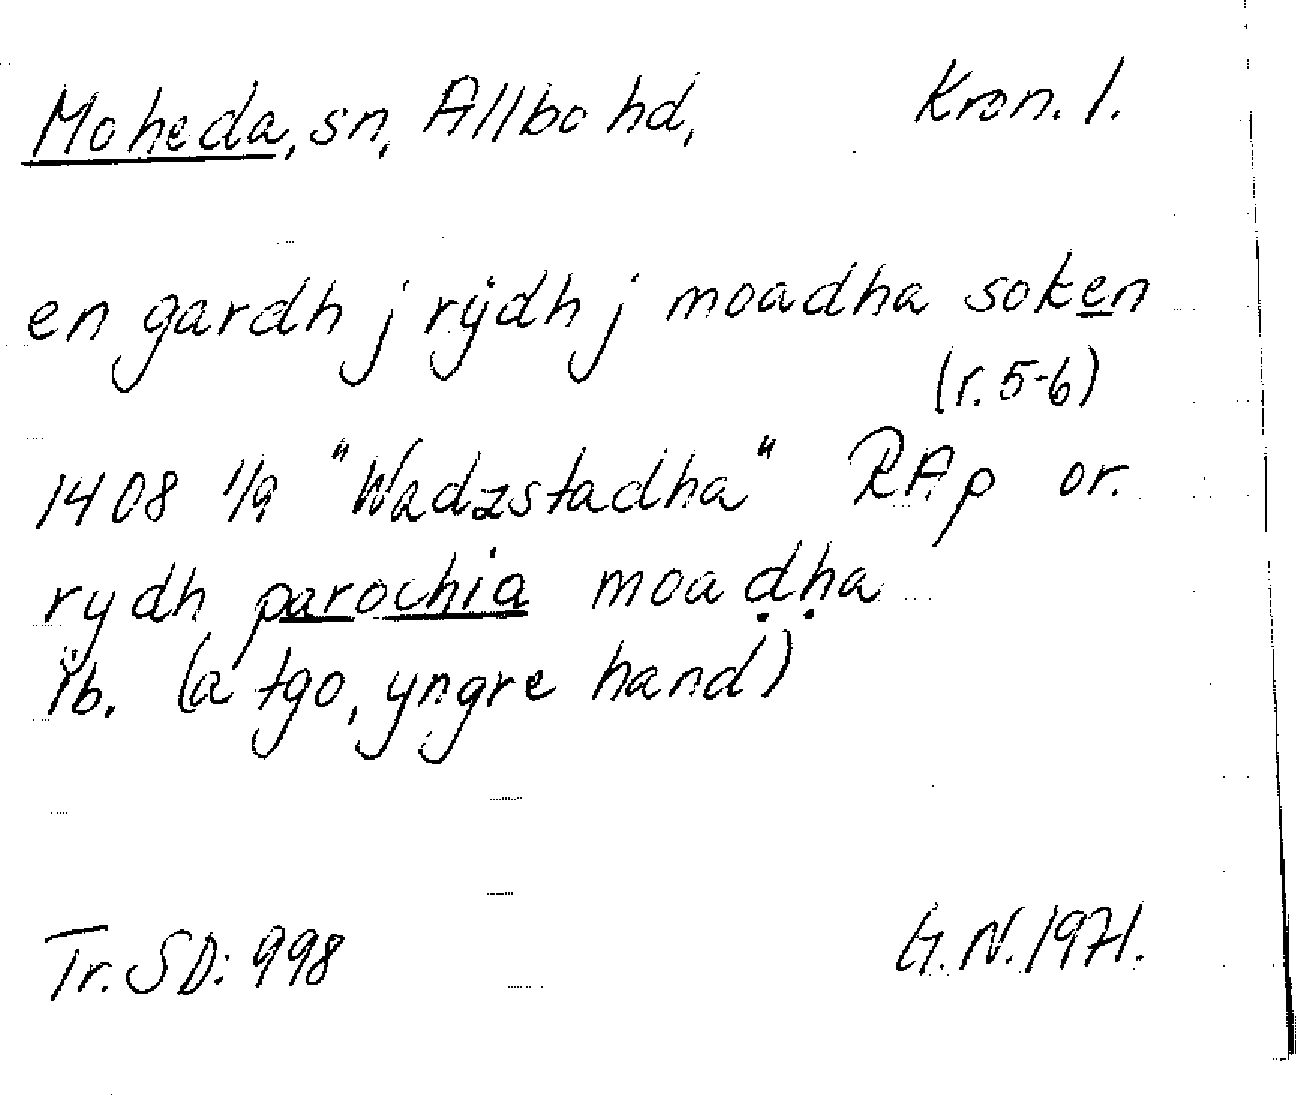 Moheda, sn, Allbo hd, Kron. l.
en gardh j rÿdh j moadha soken
(r. 5-6)
1408 1/9 "Wadzstadha" RAp or.
rydh parochia moaḍḥa
ib. (a tgo, yngre hand)
Tr. SD: 998 G. N. 1971.